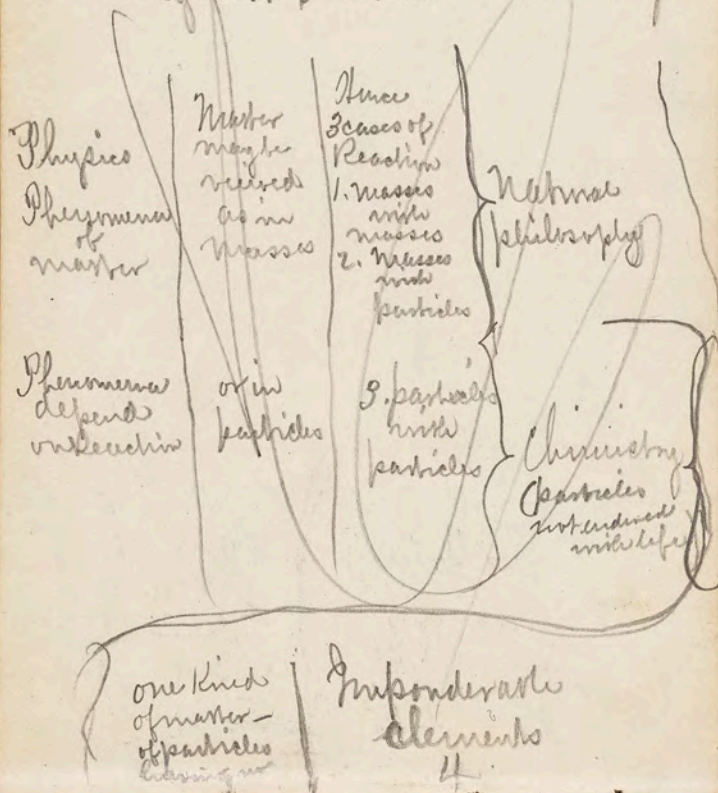 Physics
Phenomena
of
matter
Phenomena
depend
on Reaction
Matter
may be
veiwed
as in
masses
or in
particles
Hence
3 cases of
Reaction
1. Masses
with
masses
2. Masses
with
particles
3. particles
with
particles
Natural
philosophy
Chemistry
(particles
not endowed
with life
one Kind
of matter -
of particles
having no
Imponderable
elements
4